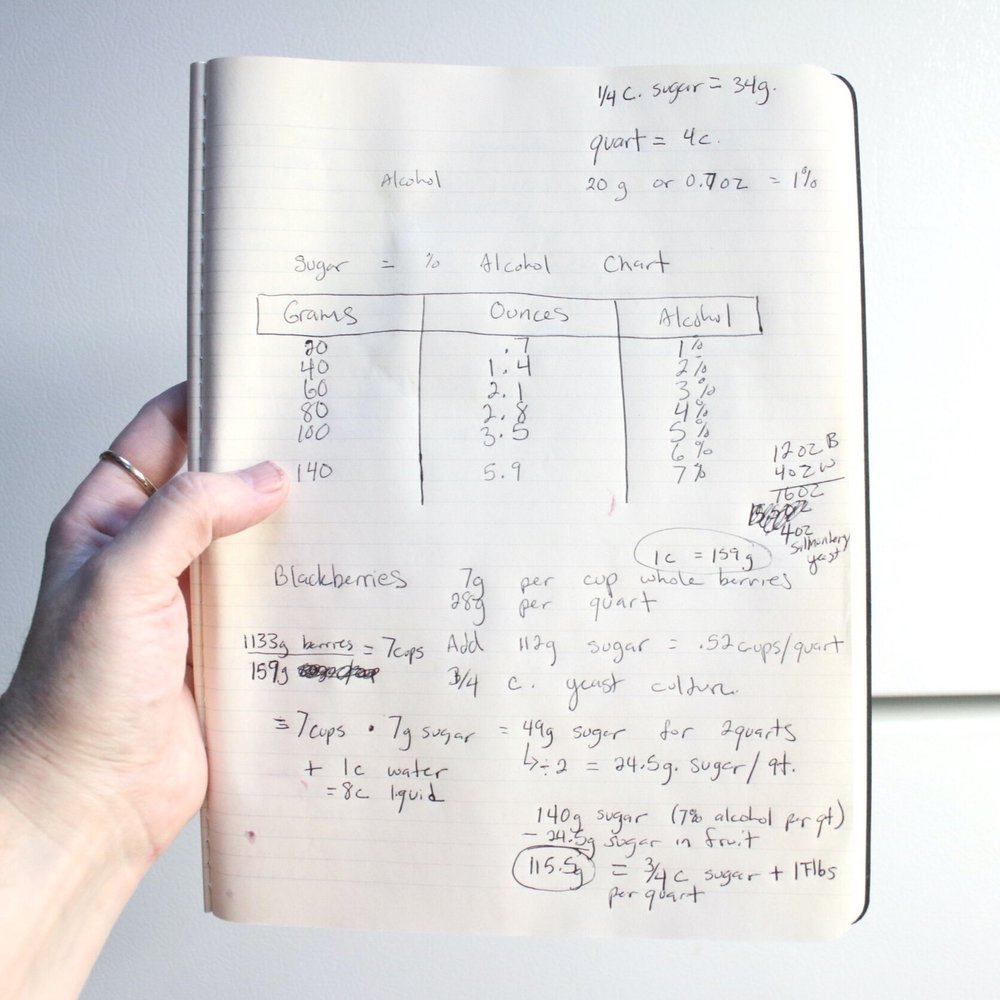 1/4 c. sugar = 34g.
quart = 4c.
Alcohol
20 g or 0.7oz = 1%
Sugar = % Alcohol Chart
Grams Ounces Alcohol
20 .7 1%
40 1.4 2%
60 2.1 3%
80 2.8 4%
100 3.5 5%
6%
140 5.9 7%
12oz B
4oz W
16oz
4oz
yeast
1c = 159g
Blackberries 7g per cup whole berries
28g per quart
1133g berries = 7cups Add 112g sugar = .52cups/quart
159g 3/4 c. yeast culture.
= 7cups • 7g sugar = 49g sugar for 2quarts
+ 1c water ↳÷2 = 24.5g. sugar/qt.
= 8c liquid
140g sugar (7% alcohol per qt)
- 24.5g sugar in fruit
115.5g = 3/4 c sugar + 1Tlbs
per quart